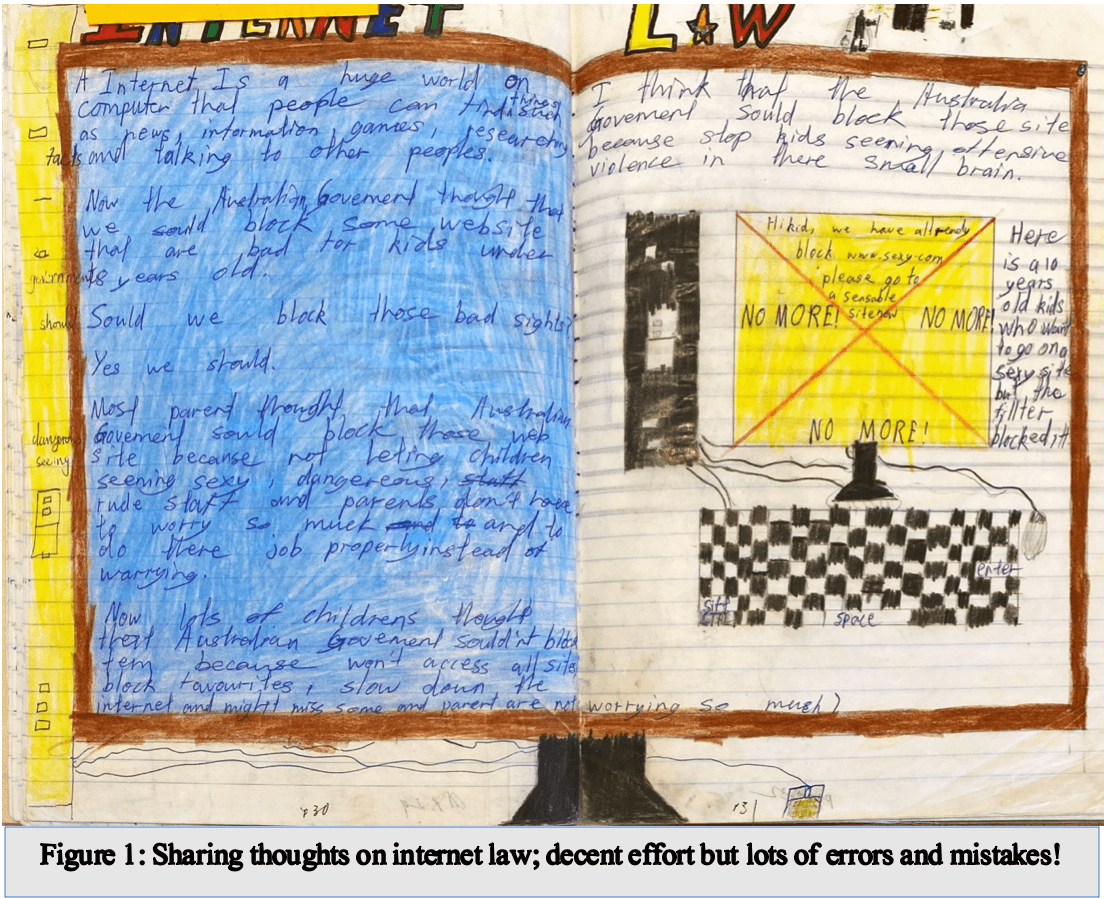 INTERNET LAW
A Internet Is a huge world on
computer that people can find things such
as news, information games, researching
facts and talking to other peoples.
Now the Australian Govement thought that
we sould block some website
that are bad for kids under
18 years old.
Sould we block those bad sights?
Yes we should.
Most parent thought that Australian
Govement sould block those web
site because not leting children
seeing sexy, dangereous, staff
rude staff and parents don't have
to worry so much and to and to
do there job properly instead of
warrying.
Now lots of childrens thought
that Australian Govement sould'nt block
tem because won't access all site
block favourites, slow down the
internet and might miss some and parent are not worrying so much)
governments
should
dangerous
seeing
I think that the Australia
Govement sould block those site
because stop kids seeing offensive
violence in there small brain.
Hi kid, we have allready
block www.sexy.com
please go to
a sensable
site now
NO MORE! NO MORE!
NO MORE!
Here
is a 10
years
old kids
who want
to go on a
sexy site
but the
filter
blocked it
enter
sift
ctrl
space
p30
p31
Figure 1: Sharing thoughts on internet law; decent effort but lots of errors and mistakes!